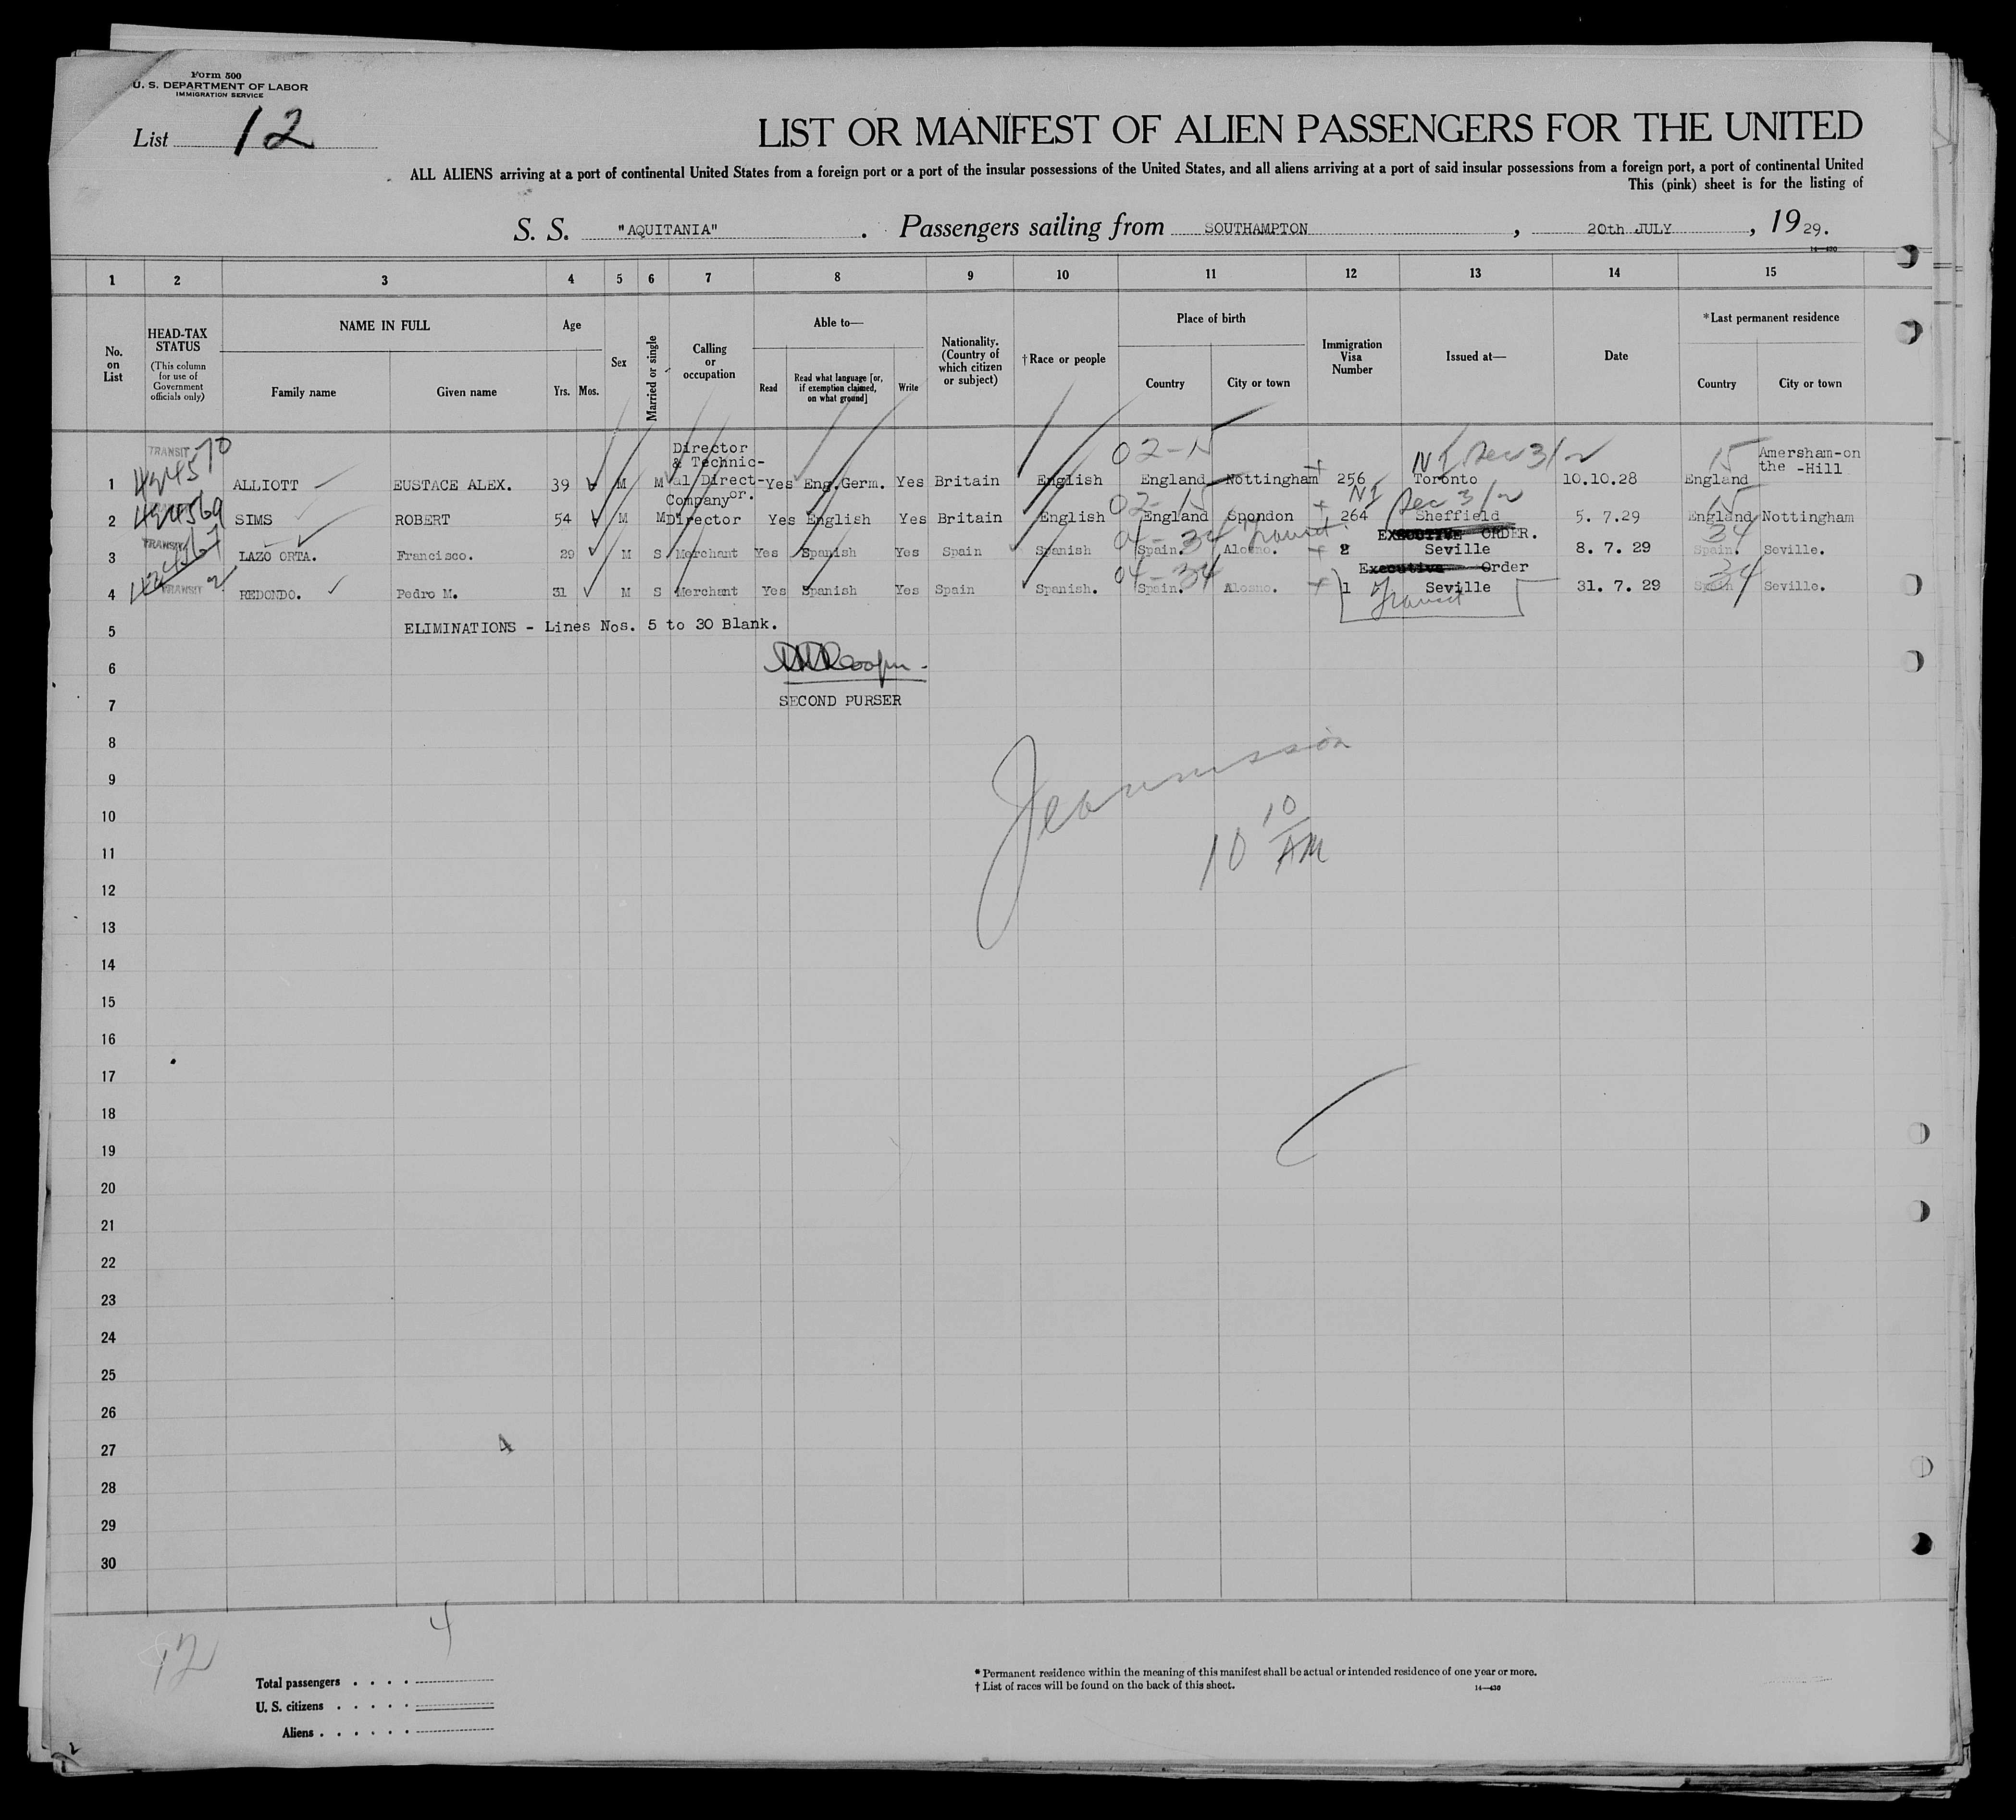 Form 500
U. S. DEPARTMENT OF LABOR
IMMIGRATION SERVICE
List 12
LIST OR MANIFEST OF ALIEN PASSENGERS FOR THE UNITED
ALL ALIENS arriving at a port of continental United States from a foreign port or a port of the insular possessions of the United States, and all aliens arriving at a port of said insular possessions from a foreign port, a port of continental United
This (pink) sheet is for the listing of
S. S. "AQUITANIA" . Passengers sailing from SOUTHAMPTON , 20th JULY , 19 29.
14—430
1 2 3 4 5 6 7 8 9 10 11 12 13 14 15
No. on List
HEAD-TAX STATUS
(This column for use of Government officials only)
NAME IN FULL
Family name Given name
Age
Yrs. Mos.
Sex
Married or single
Calling or occupation
Able to—
Read
Read what language [or, if exemption claimed, on what ground]
Write
Nationality. (Country of which citizen or subject)
†Race or people
Place of birth
Country City or town
Immigration Visa Number
Issued at—
Date
*Last permanent residence
Country City or town
TRANSIT 424570 02-15 NI Sec 3/2 15
1 ALLIOTT EUSTACE ALEX. 39 M M Director & Technic-al Direct-or. Yes Eng.Germ. Yes Britain English England Nottingham 256 Toronto 10.10.28 England Amersham-on the -Hill
424569 02-15 NI Sec 3/2 15
2 SIMS ROBERT 54 M M Company Director Yes English Yes Britain English England Spondon 264 Sheffield 5. 7.29 England Nottingham
TRANSIT 04-34 Transit EXECUTIVE ORDER. 34
3 LAZO ORTA. Francisco. 29 M S Merchant Yes Spanish Yes Spain Spanish Spain. Alosno. 2 Seville 8. 7. 29 Spain. Seville.
TRANSIT 04-34 Executive Order 34
4 REDONDO. Pedro M. 31 M S Merchant Yes Spanish Yes Spain Spanish. Spain. Alosno. 1 Seville 31. 7. 29 Spain Seville.
Transit
5 ELIMINATIONS - Lines Nos. 5 to 30 Blank.
6
7 SECOND PURSER
8
9
10
10 10 AM
11
12
13
14
15
16
17
18
19
20
21
22
23
24
25
26
27 4
28
29
30
4
12
Total passengers
U. S. citizens
Aliens
* Permanent residence within the meaning of this manifest shall be actual or intended residence of one year or more.
† List of races will be found on the back of this sheet.
14—430
2